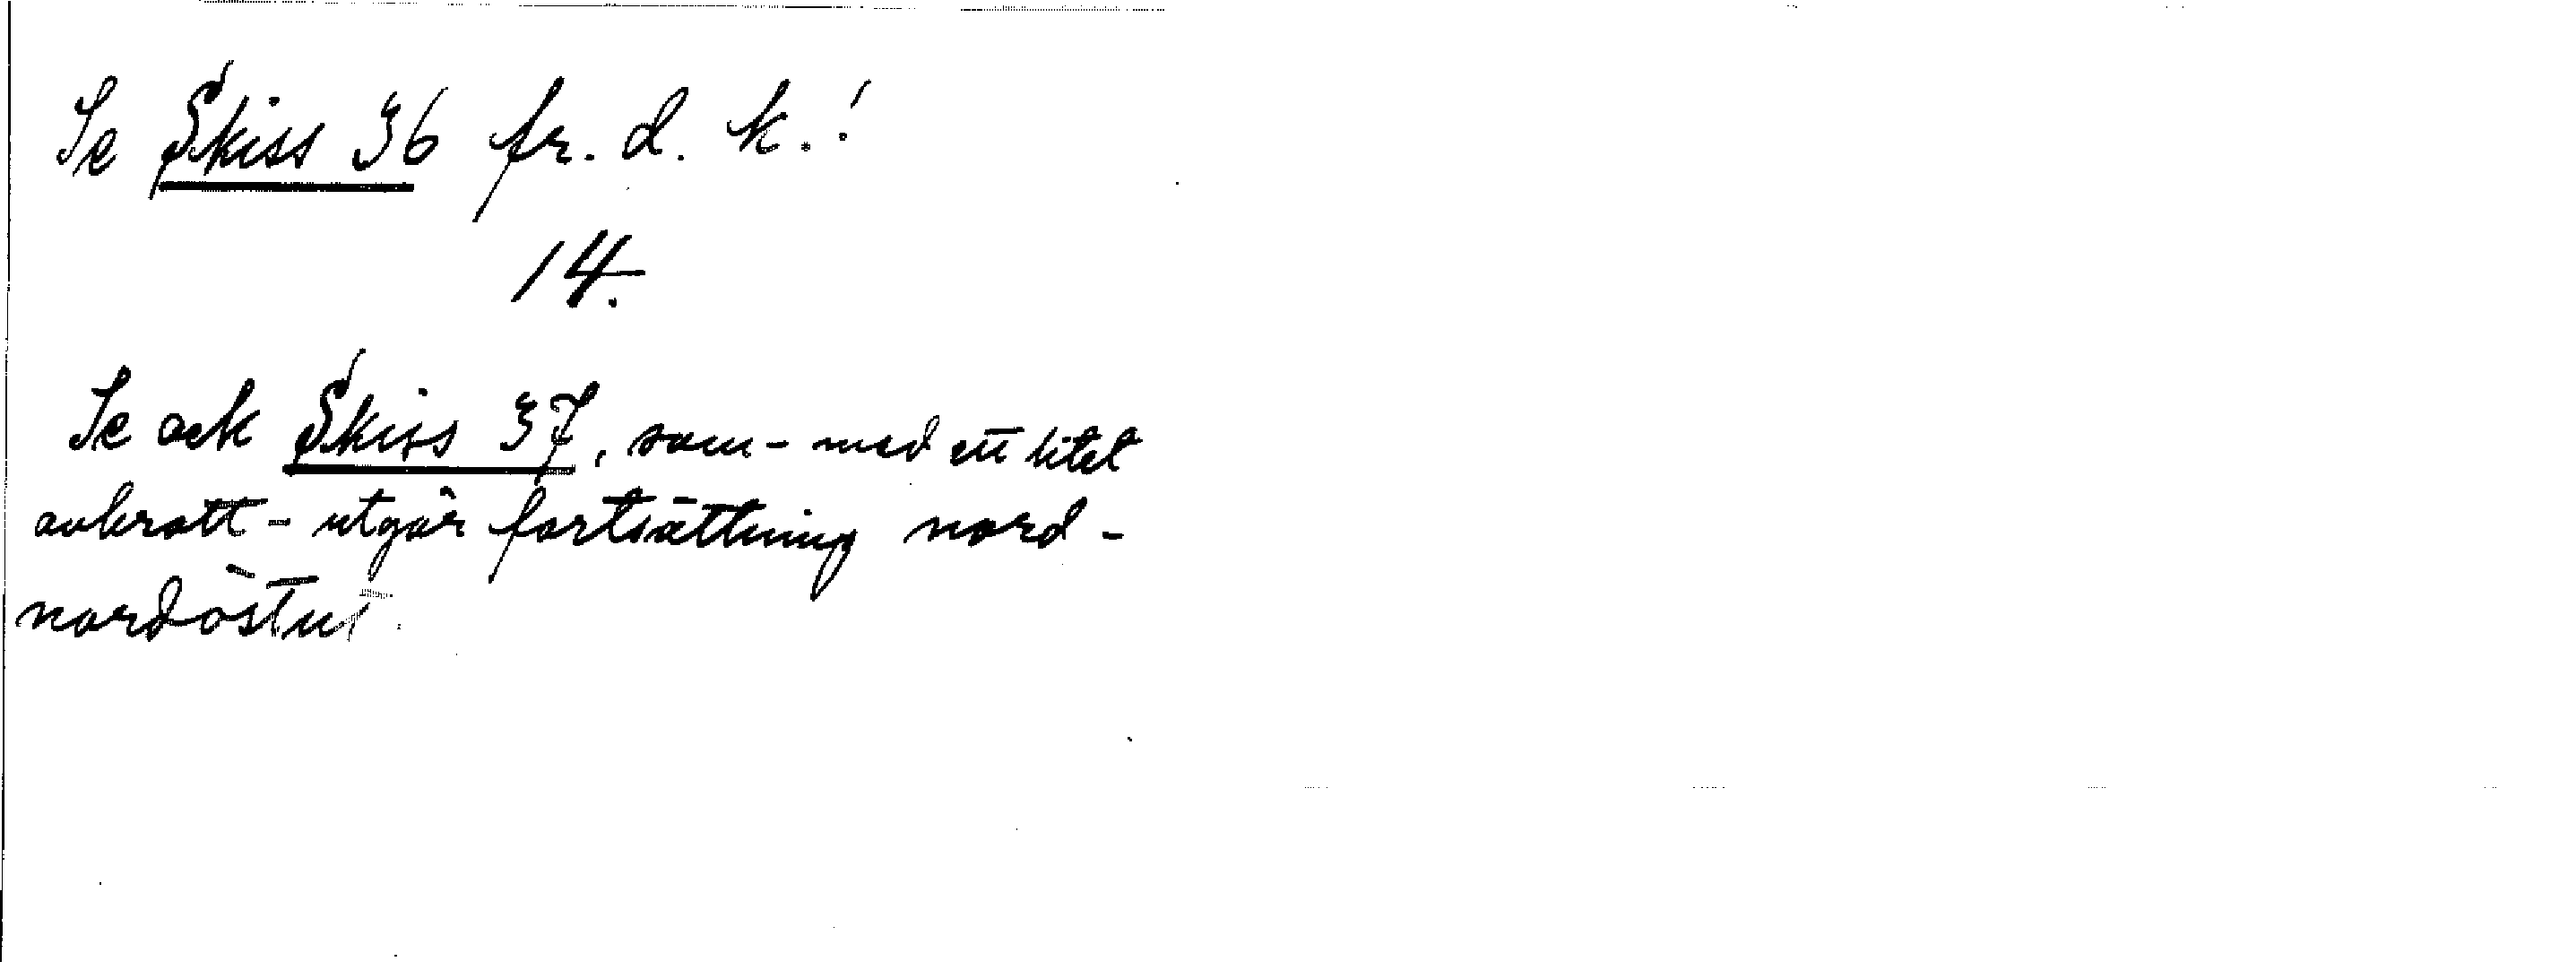 Se Skiss 36 fr. d. k.!
14.
Se ock Skiss 37, som - med ett litet
avbrott - utgör fortsättning nord-
nordöstut.